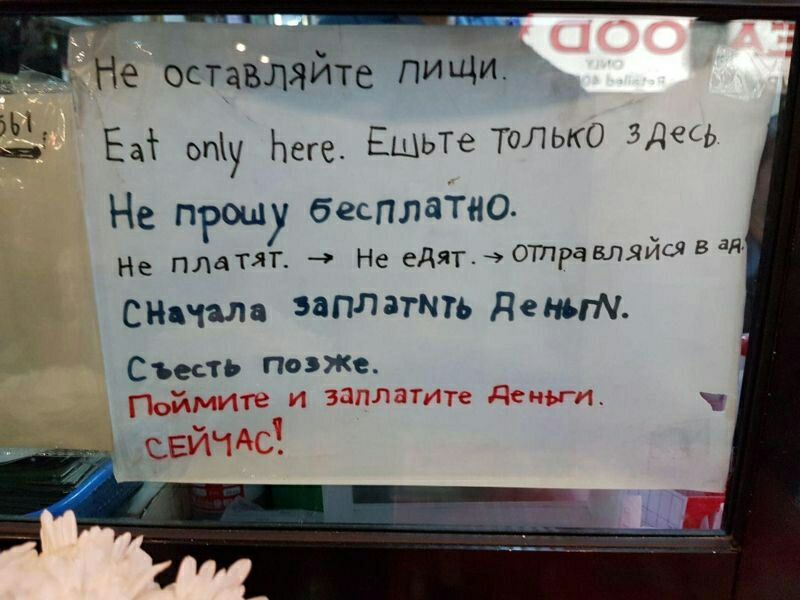 Не оставляйте пищи.
Eat only here. Ешьте только здесь.
Не прошу бесплатно.
Не платят. → Не едят. → Отправляйся в ад.
Сначала заплатNть деньгN.
Съесть позже.
Поймите и заплатите деньги.
СЕЙЧАС!
561
OOD
ONLY